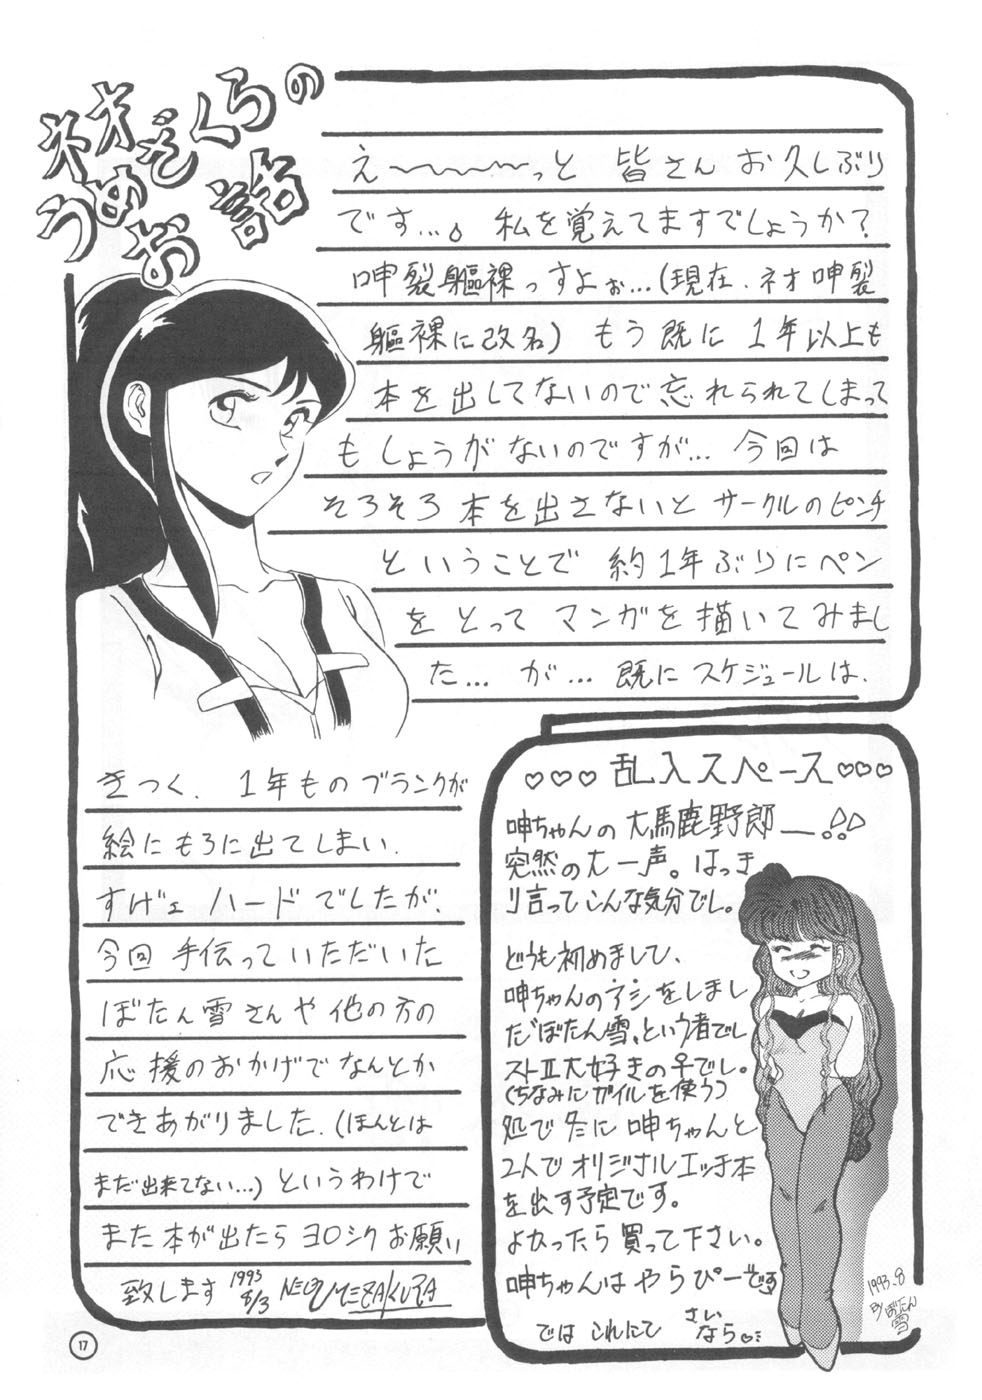 ネオ
うめぞくらの
お話
え〜〜〜っと 皆さん お久しぶり
です…。私を覚えてますでしょうか?
呻裂軀裸っすよぉ…(現在、ネオ呻裂
軀裸に改名) もう既に 1年以上も
本を出してないので忘れられてしまって
もしょうがないのですが… 今回は
そろそろ本を出さないと サークルのピンチ
ということで 約1年ぶりにペン
をとって マンガを描いてみまし
た… が… 既にスケジュールは、
きつく、1年ものブランクが
絵にもろに出てしまい、
すげェ ハードでしたが、
今回 手伝っていただいた
ぼたん雪さんや他の方の
応援のおかげでなんとか
できあがりました。(ほんとは
まだ出来てない…)というわけで
また本が出たら ヨロシクお願い
致します 1993 8/3 NEO UMEZAKURA
♡♡♡ 乱入スペース ♡♡♡
呻ちゃんの大馬鹿野郎―!!
突然の大一声。はっき
り言ってこんな気分でし。
どうも初めまして、
呻ちゃんのアシをしまし
た“ぼたん雪”という者でし
ストⅡ大好きの♀でし。
(ちなみにガイルを使う)
処で冬に 呻ちゃんと
2人でオリジナルエッチ本
を出す予定です。
よかったら買って下さい。
呻ちゃんは やらぴーです
では これにて さいなら♡…
1993.8
By ぼたん雪
17